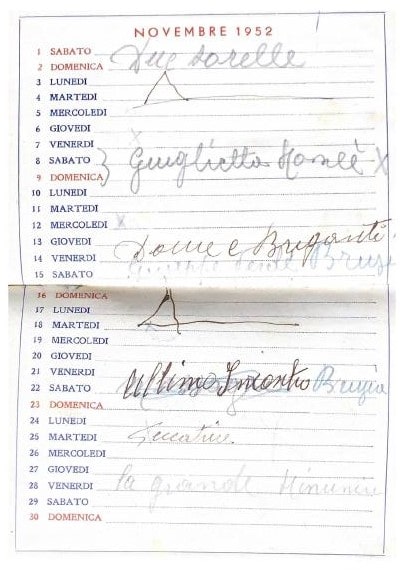 NOVEMBRE 1952
1 SABATO
2 DOMENICA Due sorelle
3 LUNEDI
4 MARTEDI
5 MERCOLEDI
6 GIOVEDI
7 VENERDI x
8 SABATO Guiglietta X
9 DOMENICA
10 LUNEDI
11 MARTEDI
12 MERCOLEDI x
13 GIOVEDI Donne e Briganti
14 VENERDI
15 SABATO
16 DOMENICA
17 LUNEDI
18 MARTEDI x
19 MERCOLEDI
20 GIOVEDI
21 VENERDI
22 SABATO Ultimo Incontro
23 DOMENICA
24 LUNEDI
25 MARTEDI
26 MERCOLEDI
27 GIOVEDI
28 VENERDI la grande
29 SABATO
30 DOMENICA